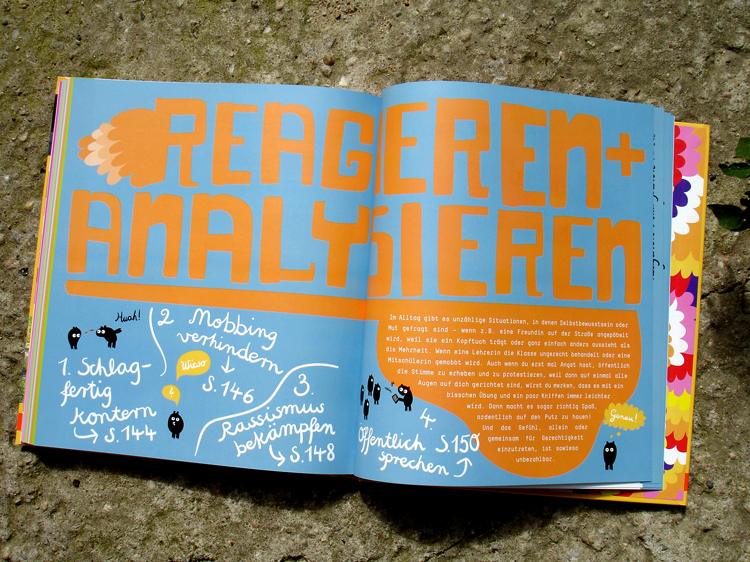 REAGIEREN+
ANALYSIEREN
Huah!
1. Schlag-
fertig
kontern
→ S.144
2 Mobbing
verhindern
→ S.146
Wieso
3.
Rassismus
bekämpfen
→ S.148
4.
Öffentlich S.150
sprechen
Im Alltag gibt es unzählige Situationen, in denen Selbstbewusstsein oder
Mut gefragt sind – wenn z.B. eine Freundin auf der Straße angepöbelt
wird, weil sie ein Kopftuch trägt oder ganz einfach anders aussieht als
die Mehrheit. Wenn eine Lehrerin die Klasse ungerecht behandelt oder eine
Mitschülerin gemobbt wird. Auch wenn du erst mal Angst hast, öffentlich
die Stimme zu erheben und zu protestieren, weil dann auf einmal alle
Augen auf dich gerichtet sind, wirst du merken, dass es mit ein
bisschen Übung und ein paar Kniffen immer leichter
wird. Dann macht es sogar richtig Spaß,
ordentlich auf den Putz zu hauen!
Und das Gefühl, allein oder
gemeinsam für Gerechtigkeit
einzutreten, ist sowieso
unbezahlbar.
Genau!